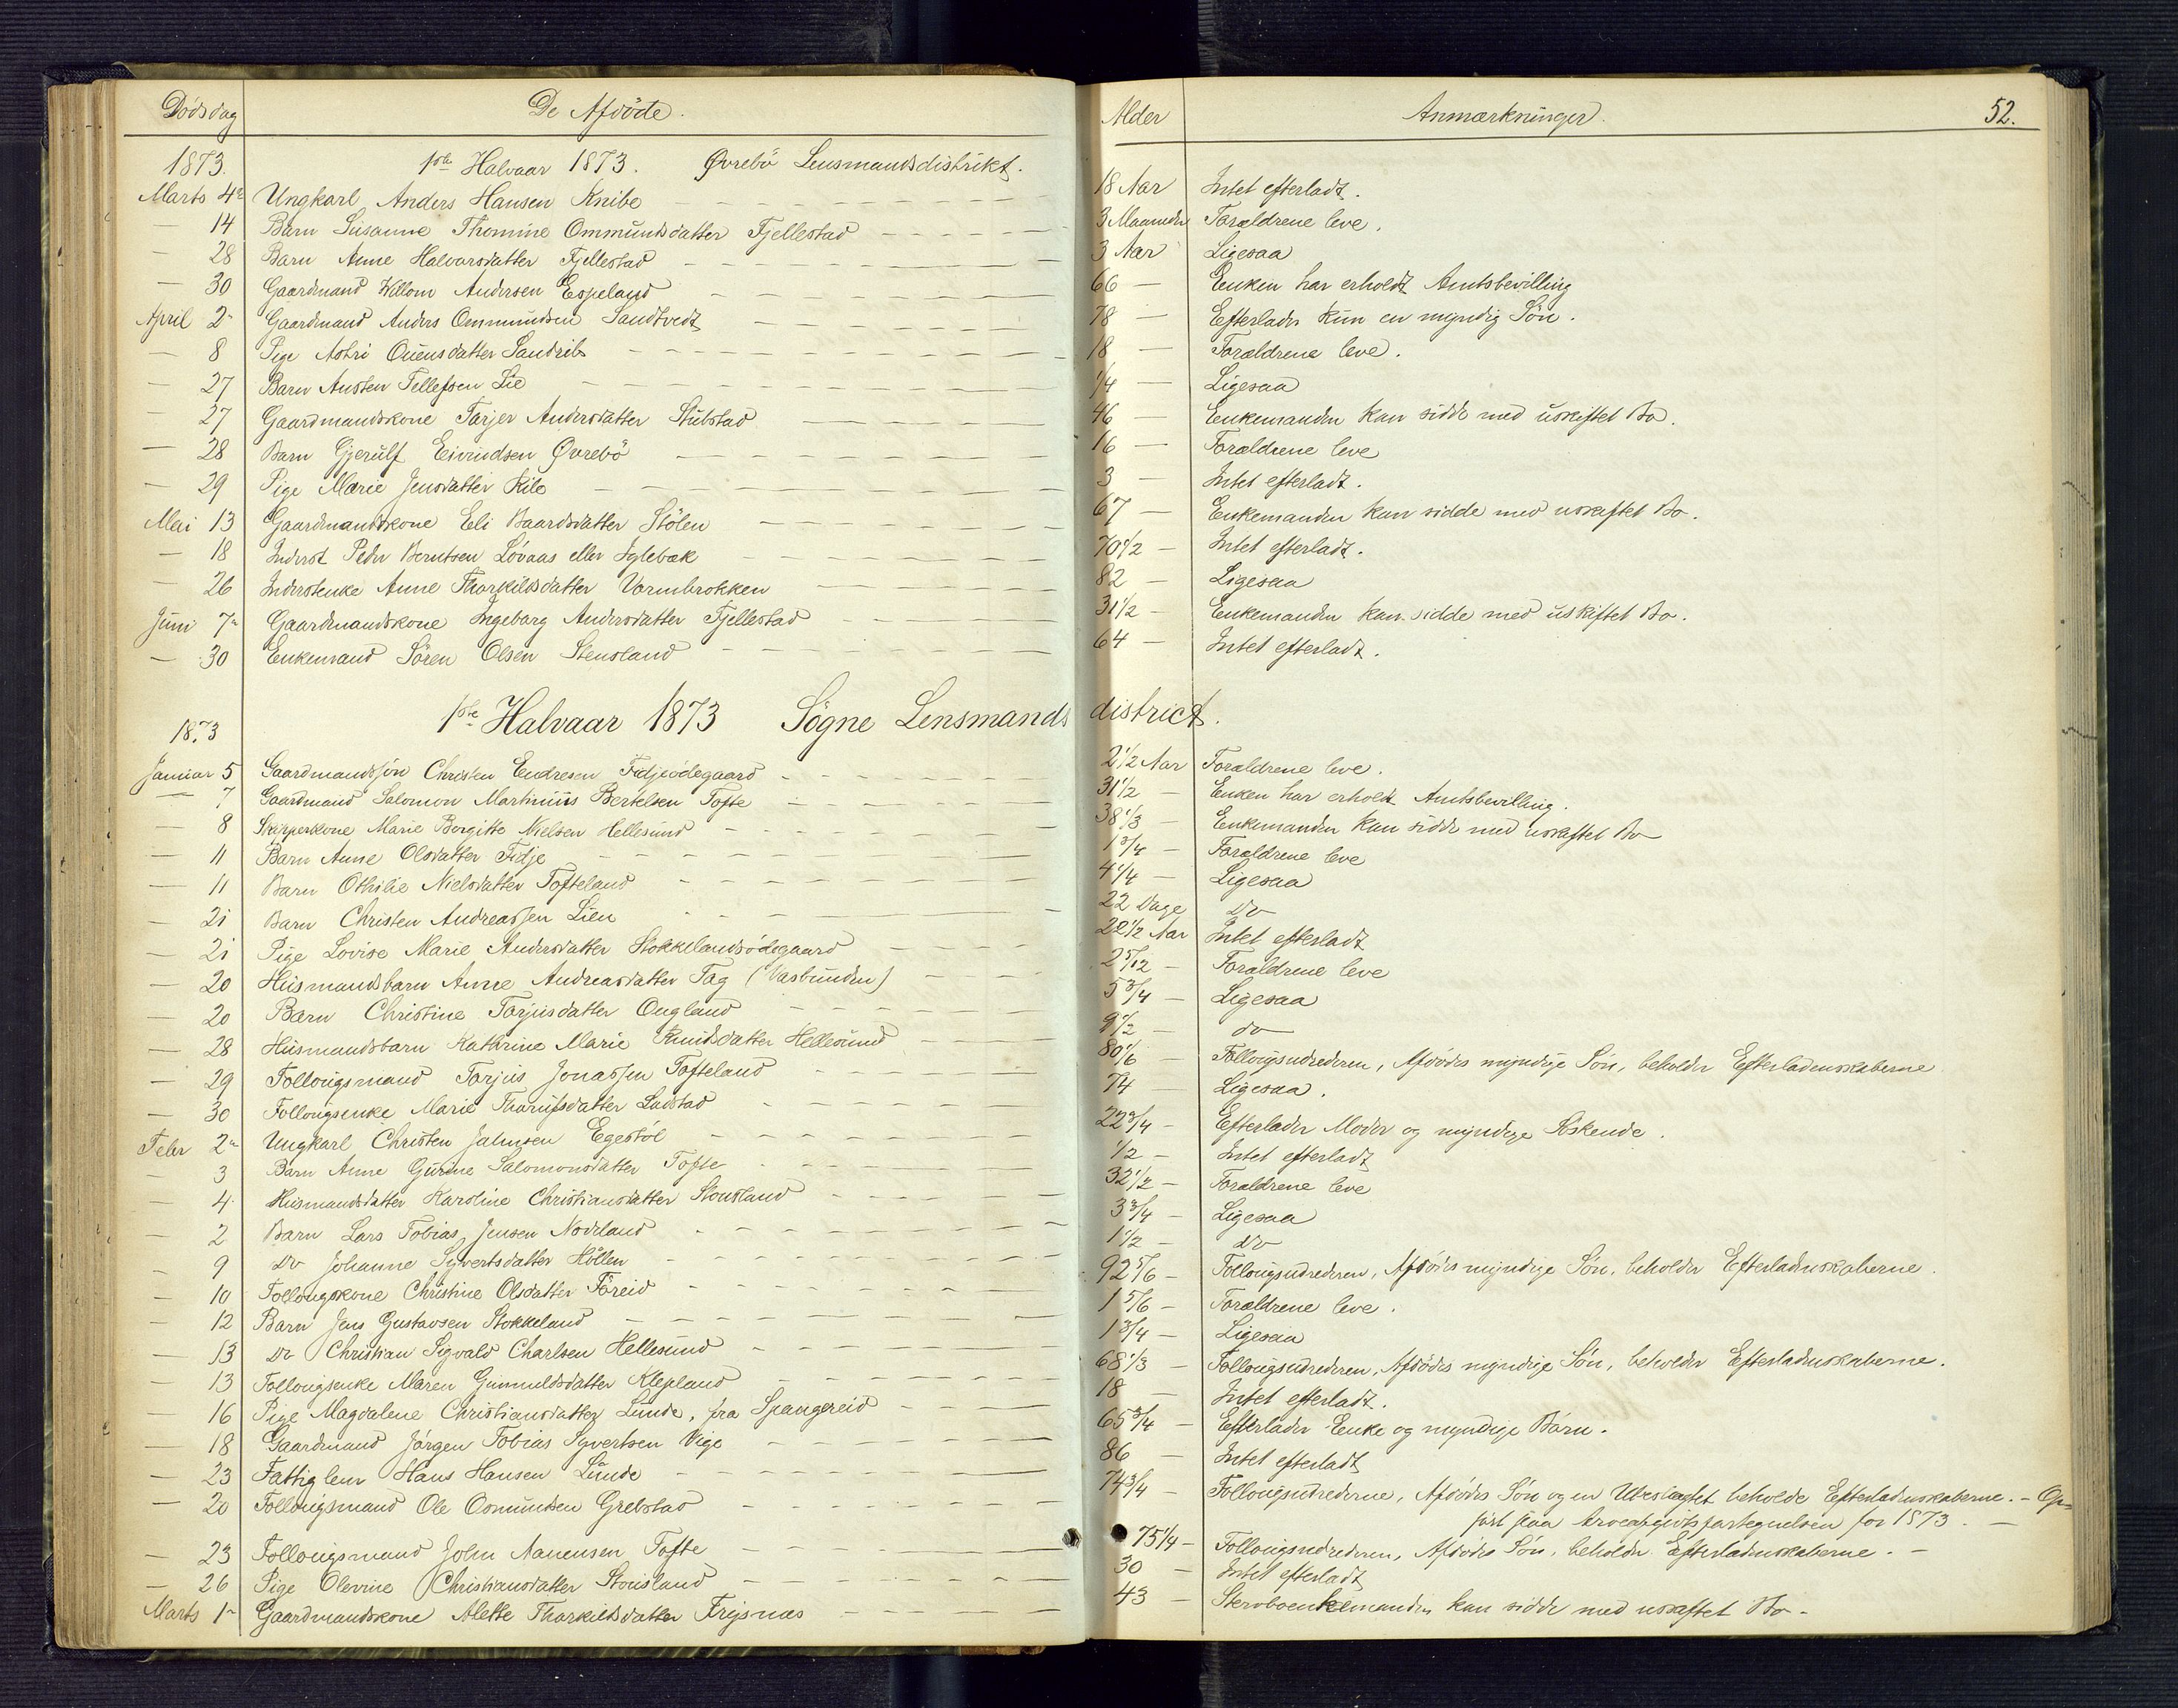 Dödsdag De Afdöde. Alder Anmærkninger. 52.
1873. 1ste Halvaar 1873. Øvrebö Lensmandsdistrikt.
Marts 4de Ungkarl Anders Hansen Knibe 18 Aar Intet efterladt.
— 14 Barn Susanne Thomine Ommundsdatter Fjellestad 3 Maaneder Forældrene leve.
— 28 Barn Anne Halvorsdatter Fjellestad 3 Aar Ligesaa
— 30 Gaardmand Willom Andersen Espeland 66 — Enken har erholdt Amtsbevilling
April 2 Gaardmand Anders Ommundsen Sandtvedt 78 — Efterlader kun en myndig Sön.
— 8 Pige Astri Ouensdatter 18 — Forældrene leve.
— 27 Barn Austen Tellefsen Lie 1/4 — Ligesaa
— 27 Gaardmandskone Tarjer Andersdatter Stubstad 46 — Enkemanden kan sidde med uskiftet Bo.
— 28 Barn Gjerulf Eivindsen Øvrebö 16 — Forældrene leve
— 29 Pige Marie Jensdatter Kile 3 — Intet efterladt.
Mai 13 Gaardmandskone Eli Baardsdatter Stölen 67 — Enkemanden kan sidde med uskiftet Bo.
— 18 Inderst Peder Berntsen Lövaas eller Iglebæk 70 1/2 — Intet efterladt.
— 26 Inderstenke Anne Tharkildsdatter Varmbrokken 82 — Ligesaa
Juni 7 Gaardmandskone Ingeborg Andersdatter Fjellestad 31 1/2 — Enkemanden kan sidde med uskiftet Bo.
— 30 Enkemand Sören Olsen Stensland 64 — Intet efterladt.
1873 1ste Halvaar 1873 Sögne Lensmandsdistrict.
Januar 5 Gaardmandssön Christen Endresen Fidjeödegaard 2 1/2 Aar Forældrene leve.
— 7 Gaardmand Salomon Martinius Bertelsen Tofte 31 1/2 — Enken har erholdt Amtsbevilling.
— 8 Skipperkone Marie Borgitte Nielsen Hellesund 38 1/3 — Enkemanden kan sidde med uskiftet Bo
— 11 Barn Anne Olsdatter Fidje 1 3/4 — Forældrene leve
— 11 Barn Othilie Nielsdatter Tofteland 4 1/4 — Ligesaa
— 21 Barn Christen Andreassen Lien 22 Dage Do
— 21 Pige Lovise Marie Andersdatter Stokkelandsödegaard 22 1/2 Aar Intet efterladt
— 20 Husmandsbarn Anne Andreasdatter Tag (Vasbunden) 2 5/12 — Forældrene leve
— 20 Barn Christine Torjusdatter Ougland 5 3/4 — Ligesaa
— 28 Husmandsbarn Kathrine Marie Knudsdatter Hellesund 9 1/2 — do
— 29 Follougsmand Torjus Jonassen Tofteland 80 1/6 — Follougsudrederen, Afdödes myndige Sön, beholder Efterladenskaberne
— 30 Follougsenke Marie Tharulfsdatter Ludstad 74 — Ligesaa.
Febr 2 Ungkarl Christen Jahnsen Egestöl 22 3/4 — Efterlader Moder og myndige Söskende.
— 3 Barn Anne Gurine Salomonsdatter Tofte 1/2 — Intet efterladt
— 4 Husmandsdatter Karoline Christiansdatter Stousland 32 1/2 — Forældrene leve
— 2 Barn Lars Tobias Jensen Nodeland 3 3/4 — Ligesaa
— 9 Do Johanne Syvertsdatter Höllen 1 1/2 — do
— 10 Follougskone Christine Olsdatter Föreid 92 5/6 — Follougsudrederen, Afdödes myndige Sön, beholder Efterladenskaberne.
— 12 Barn Jens Gustavsen Stokkeland 1 5/6 — Forældrene leve.
— 13 Do Christian Sigvald Charlsen Hellesund 1 3/4 — Ligesaa
— 13 Follougsenke Maren Gunnuldsdatter Klepland 68 1/3 — Follougsudrederen, Afdödes myndige Sön, beholder Efterladenskaberne.
— 16 Pige Magdalene Christiansdatter Lunde, fra Spangereid 18 — Intet efterladt.
— 18 Gaardmand Jörgen Tobias Syvertsen Vige 65 3/4 — Efterlader Enke og myndige Börn.
— 23 Fattiglem Hans Hansen Lunde 86 — Intet efterladt
— 20 Follougsmand Ole Osmundsen Grebstad 74 3/4 — Follougsudrederne, Afdödes Sön og en Ubeslægtet beholde Efterladenskaberne. - Op-
fört paa Arveafgiftsfortegnelsen for 1873.
— 23 Follougsmand John Aanensen Tofte 75 1/4 — Follougsudrederen, Afdödes Sön, beholder Efterladenskaberne. -
— 26 Pige Olevine Christiansdatter Stousland 30 — Intet efterladt
Marts 1 Gaardmandskone Alette Tharkildsdatter Frejsnæs 43 — Stervboenkemanden kan sidde med uskiftet Bo -